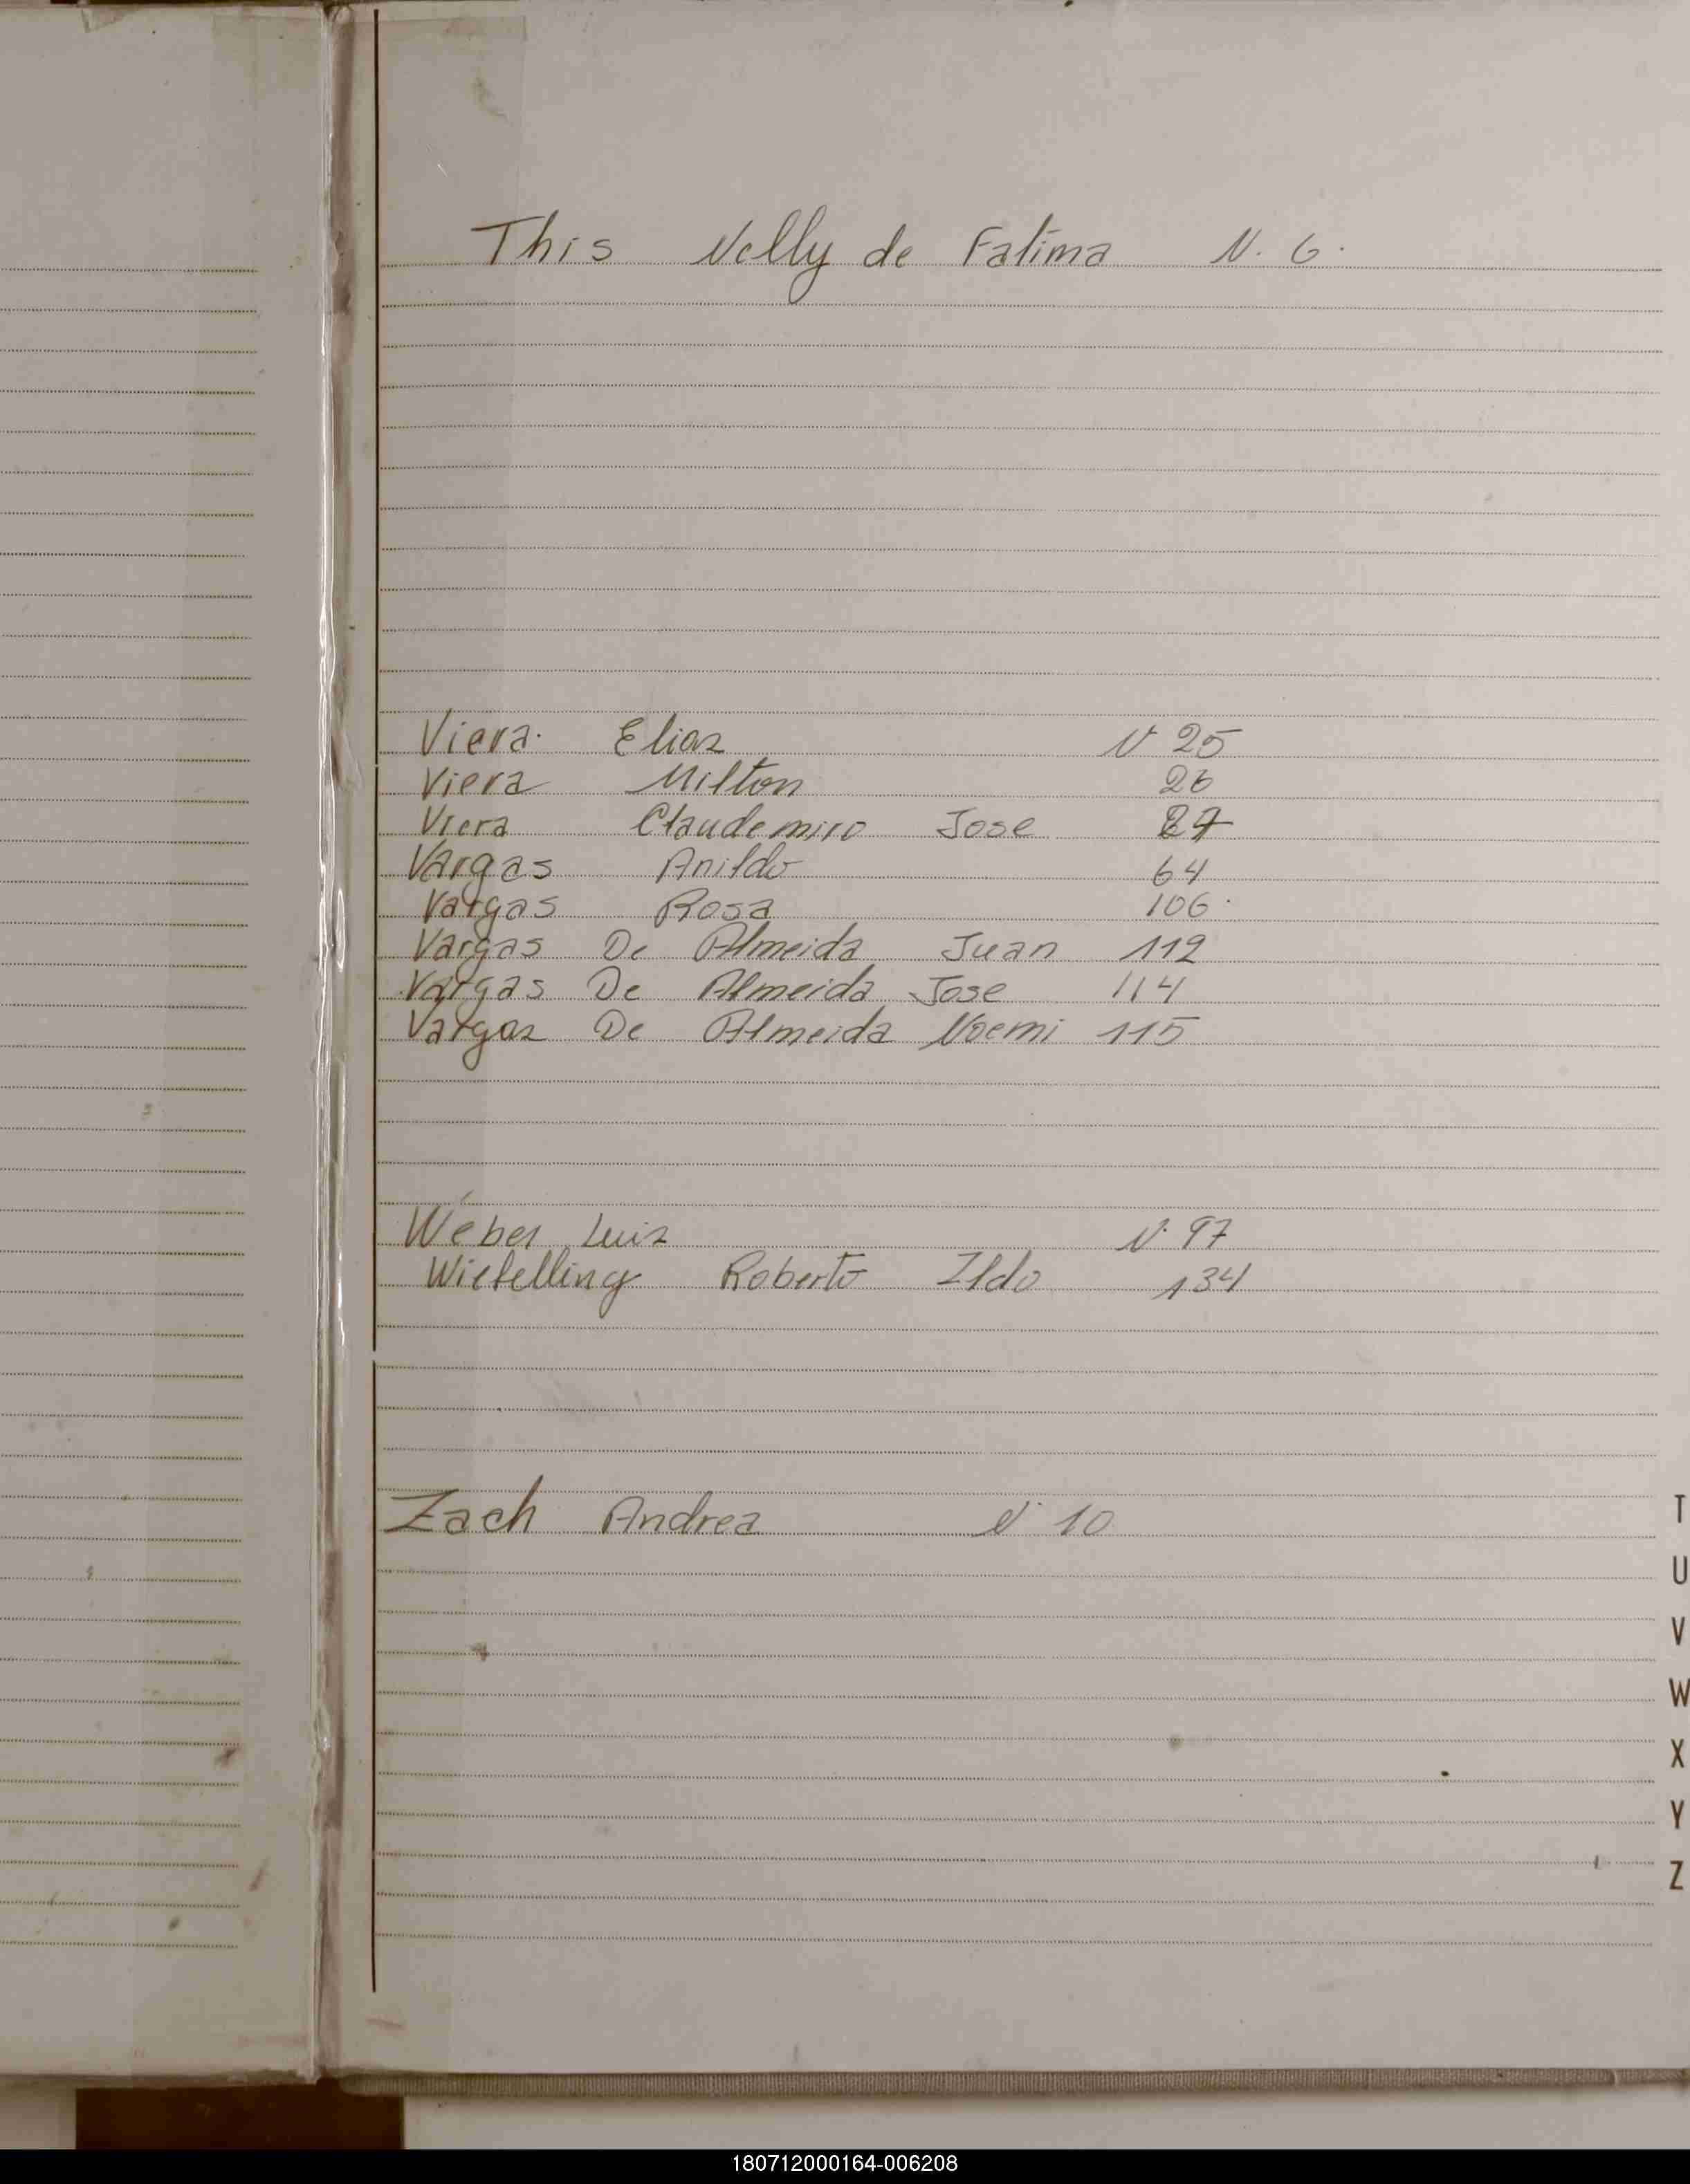 This Nelly de Fatima N. 6.
Viera. Elias N 25
Viera Milton 26
Viera Claudemiro Jose 27
Vargas Anildo 64
Vargas Rosa 106.
Vargas De Almeida Juan 112
Vargas De Almeida Jose 114
Vargas De Almeida Noemi 115
Weber Luis N. 97
Wietelling Roberto Ildo 134
Zach Andrea N 10
T
U
V
W
X
Y
Z
180712000164-006208